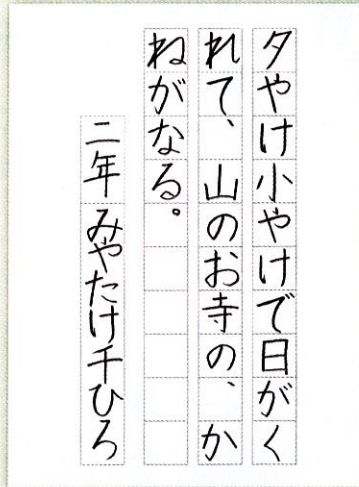 夕やけ小やけで日がく
れて、山のお寺の、か
ねがなる。
二年 みやたけ千ひろ